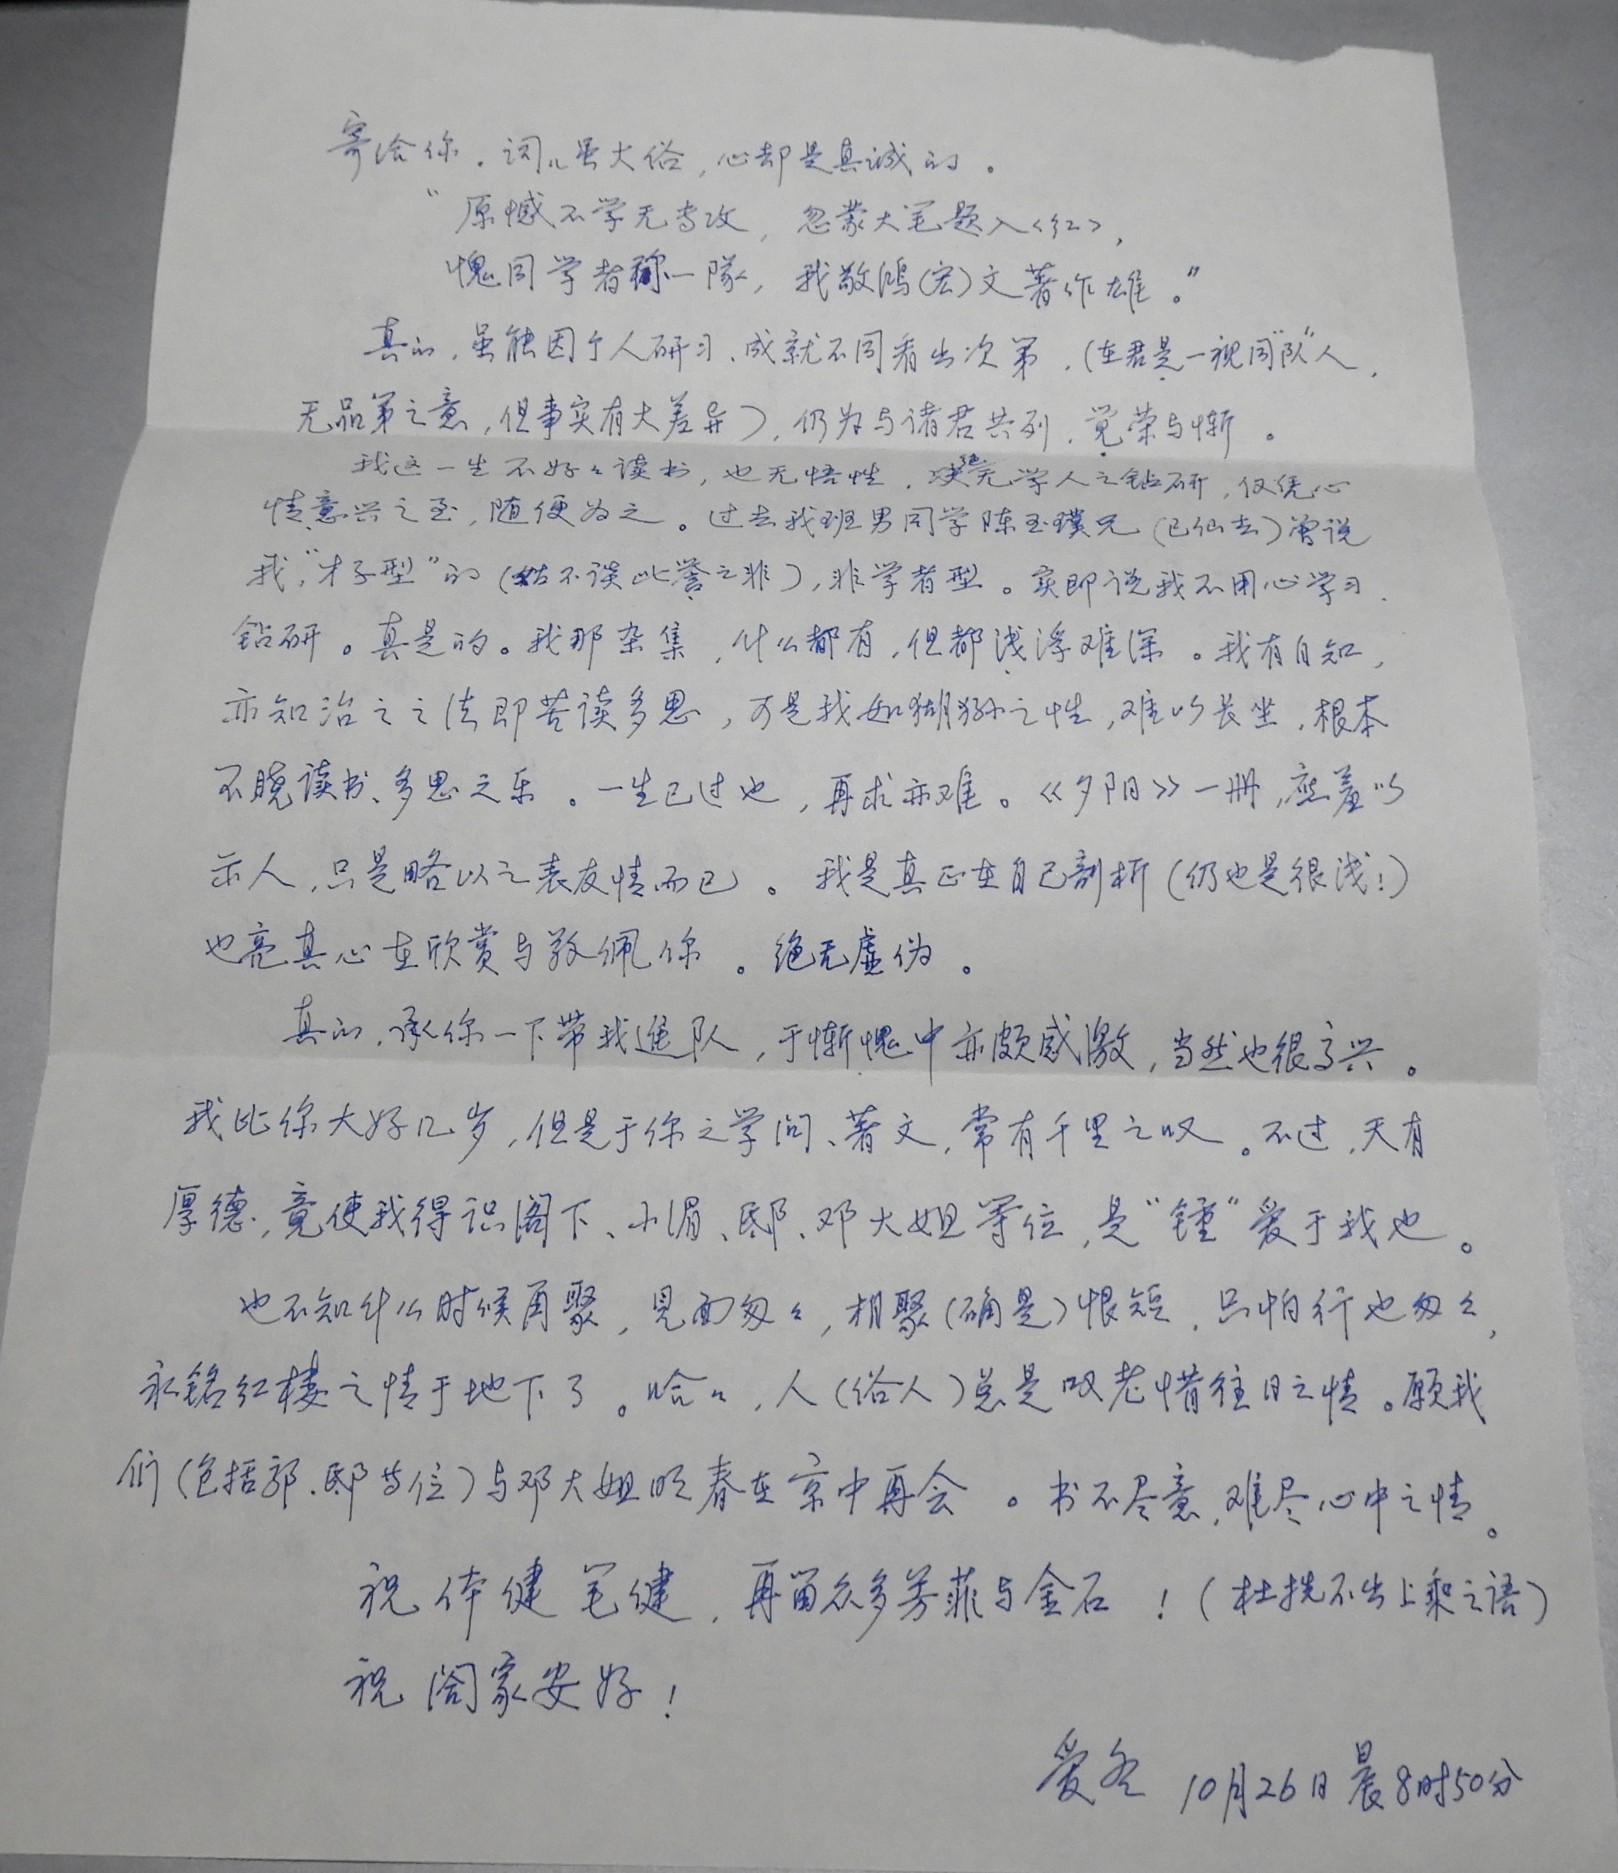 寄给你。词儿虽大俗，心却是真诚的。
“原憾不学无专攻，忽蒙大笔题入<红>，
愧同学者称一队，我敬鸿(宏)文著作雄。”
真的，虽能因个人研习、成就不同看出次第，(在君是一视同“队”人，
无品第之意，但事实有大差异)，仍为与诸君共列，觉荣与惭。
我这一生不好々读书，也无悟性，绝无学人之钻研，仅凭心
情意兴之至，随便为之。过去我班男同学陈玉璞兄(已仙去)曾说
我，“才子型”的(姑不谈此誉之非)，非学者型。实即说我不用心学习、
钻研。真是的。我那杂集，什么都有，但都浅浮难深。我有自知，
亦知治之之法即苦读多思，可是我如猢狲之性，难以长坐，根本
不晓读书、多思之乐。一生已过也，再求亦难。《夕阳》一册，应羞以
示人，只是略以之表友情而已。我是真正在自己剖析(仍也是很浅!)
也竟真心在欣赏与敬佩你。绝无虚伪。
真的，承你一下带我进队，于惭愧中亦颇感激，当然也很高兴。
我比你大好几岁，但是于你之学问、著文，常有千里之叹。不过，天有
厚德，竟使我得识阁下、小湄、邸、邓大姐等位，是“锺”爱于我也。
也不知什么时候再聚，见面匆々，相聚(确是)恨短，只怕行也匆々，
永铭红楼之情于地下了。哈哈，人(俗人)总是叹老惜往日之情。愿我
们(包括郭、邸等位)与邓大姐明春在京中再会。书不尽意，难尽心中之情。
祝体健笔健，再留众多芳菲与金石！(杜撰不出上乘之语)
祝阁家安好！
爱冬 10月26日晨8时50分